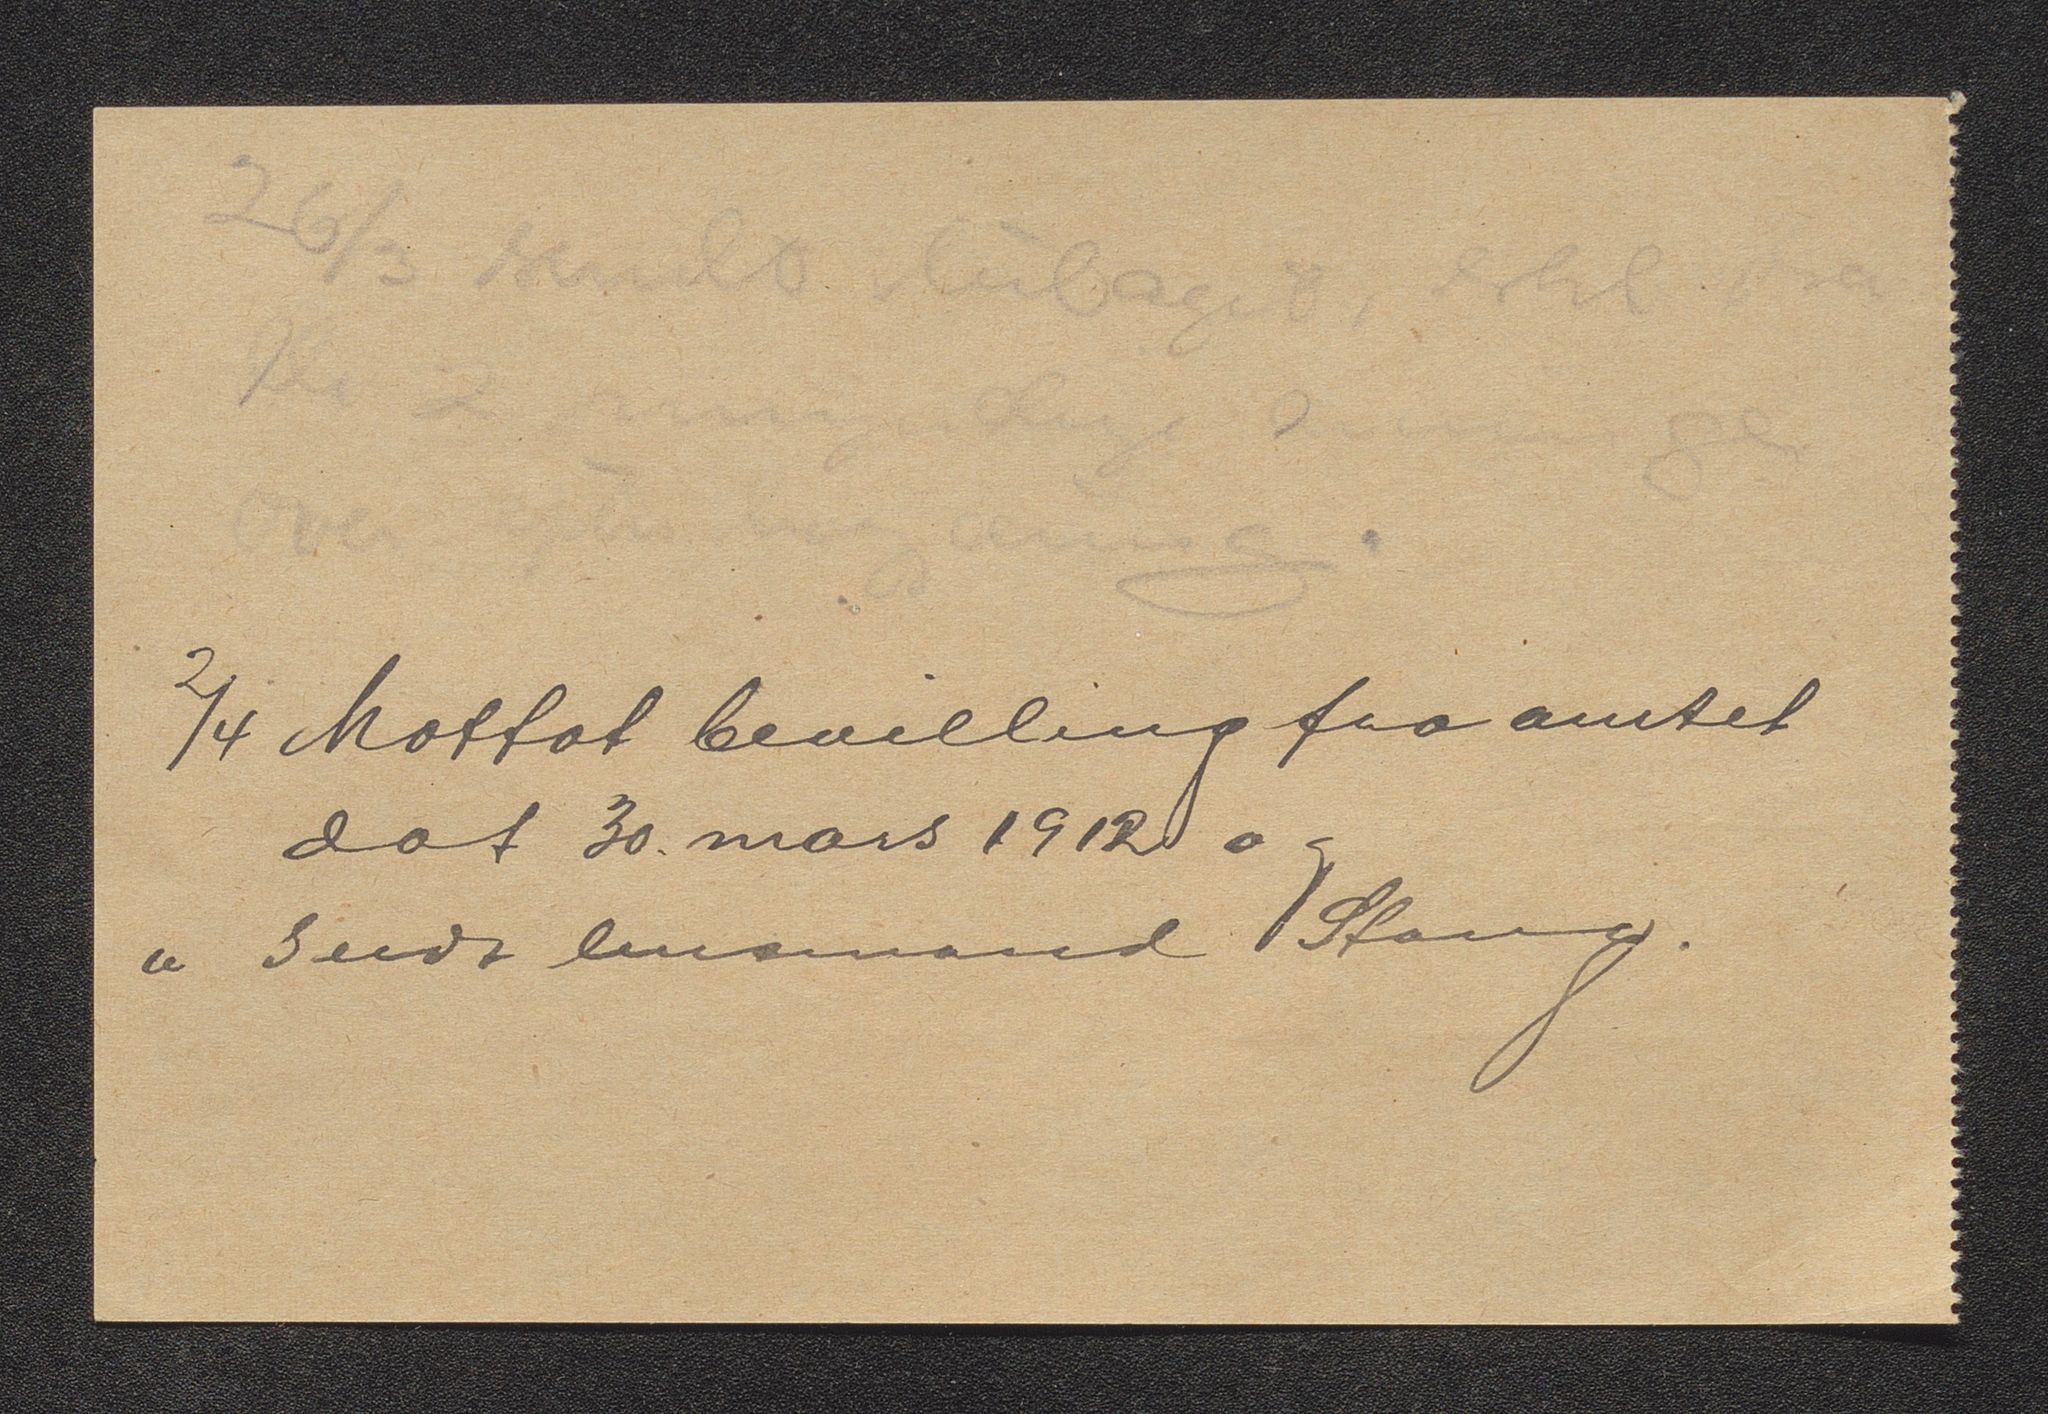 26/3 sendt tilbaget, erkl fra
de 2 myndige
over
2/4 Mottat bevilling fra amtet
dat 30. mars 1912 og
" Sendt lensmand Stang.